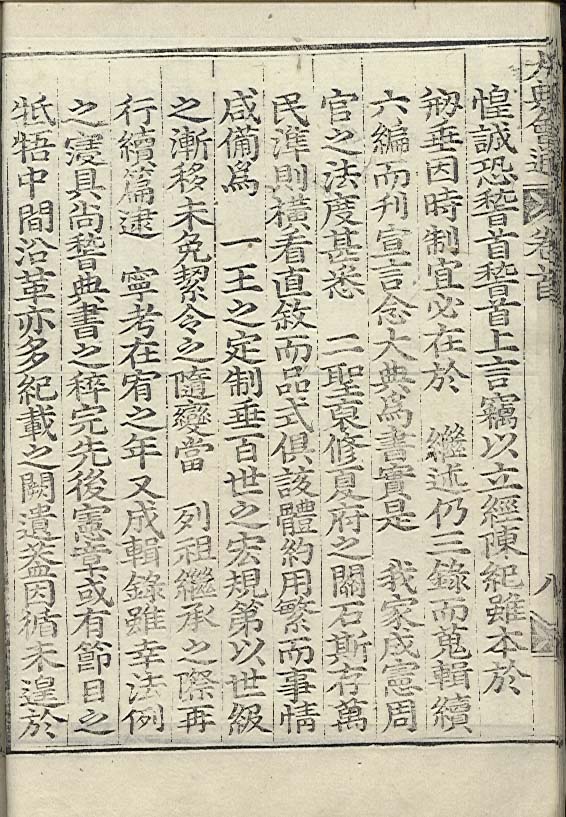 大典會通 卷首 八
惶誠恐稽首稽首上言竊以立經陳紀雖本於
刱垂因時制宜必在於 繼述仍三錄而蒐輯續
六編而刊宣言念大典爲書實是 我家成憲周
官之法度甚悉 二聖裒修夏府之關石斯存萬
民準則橫看直敘而品式俱該體約用繁而事情
咸備爲 一王之定制垂百世之宏規第以世級
之漸移未免絜令之隨變當 列祖繼承之際再
行續篇逮 寧考在宥之年又成輯錄雖幸法例
之寖具尚稽典書之稡完先後憲章或有節目之
牴牾中間沿革亦多紀載之闕遺蓋因循未遑於